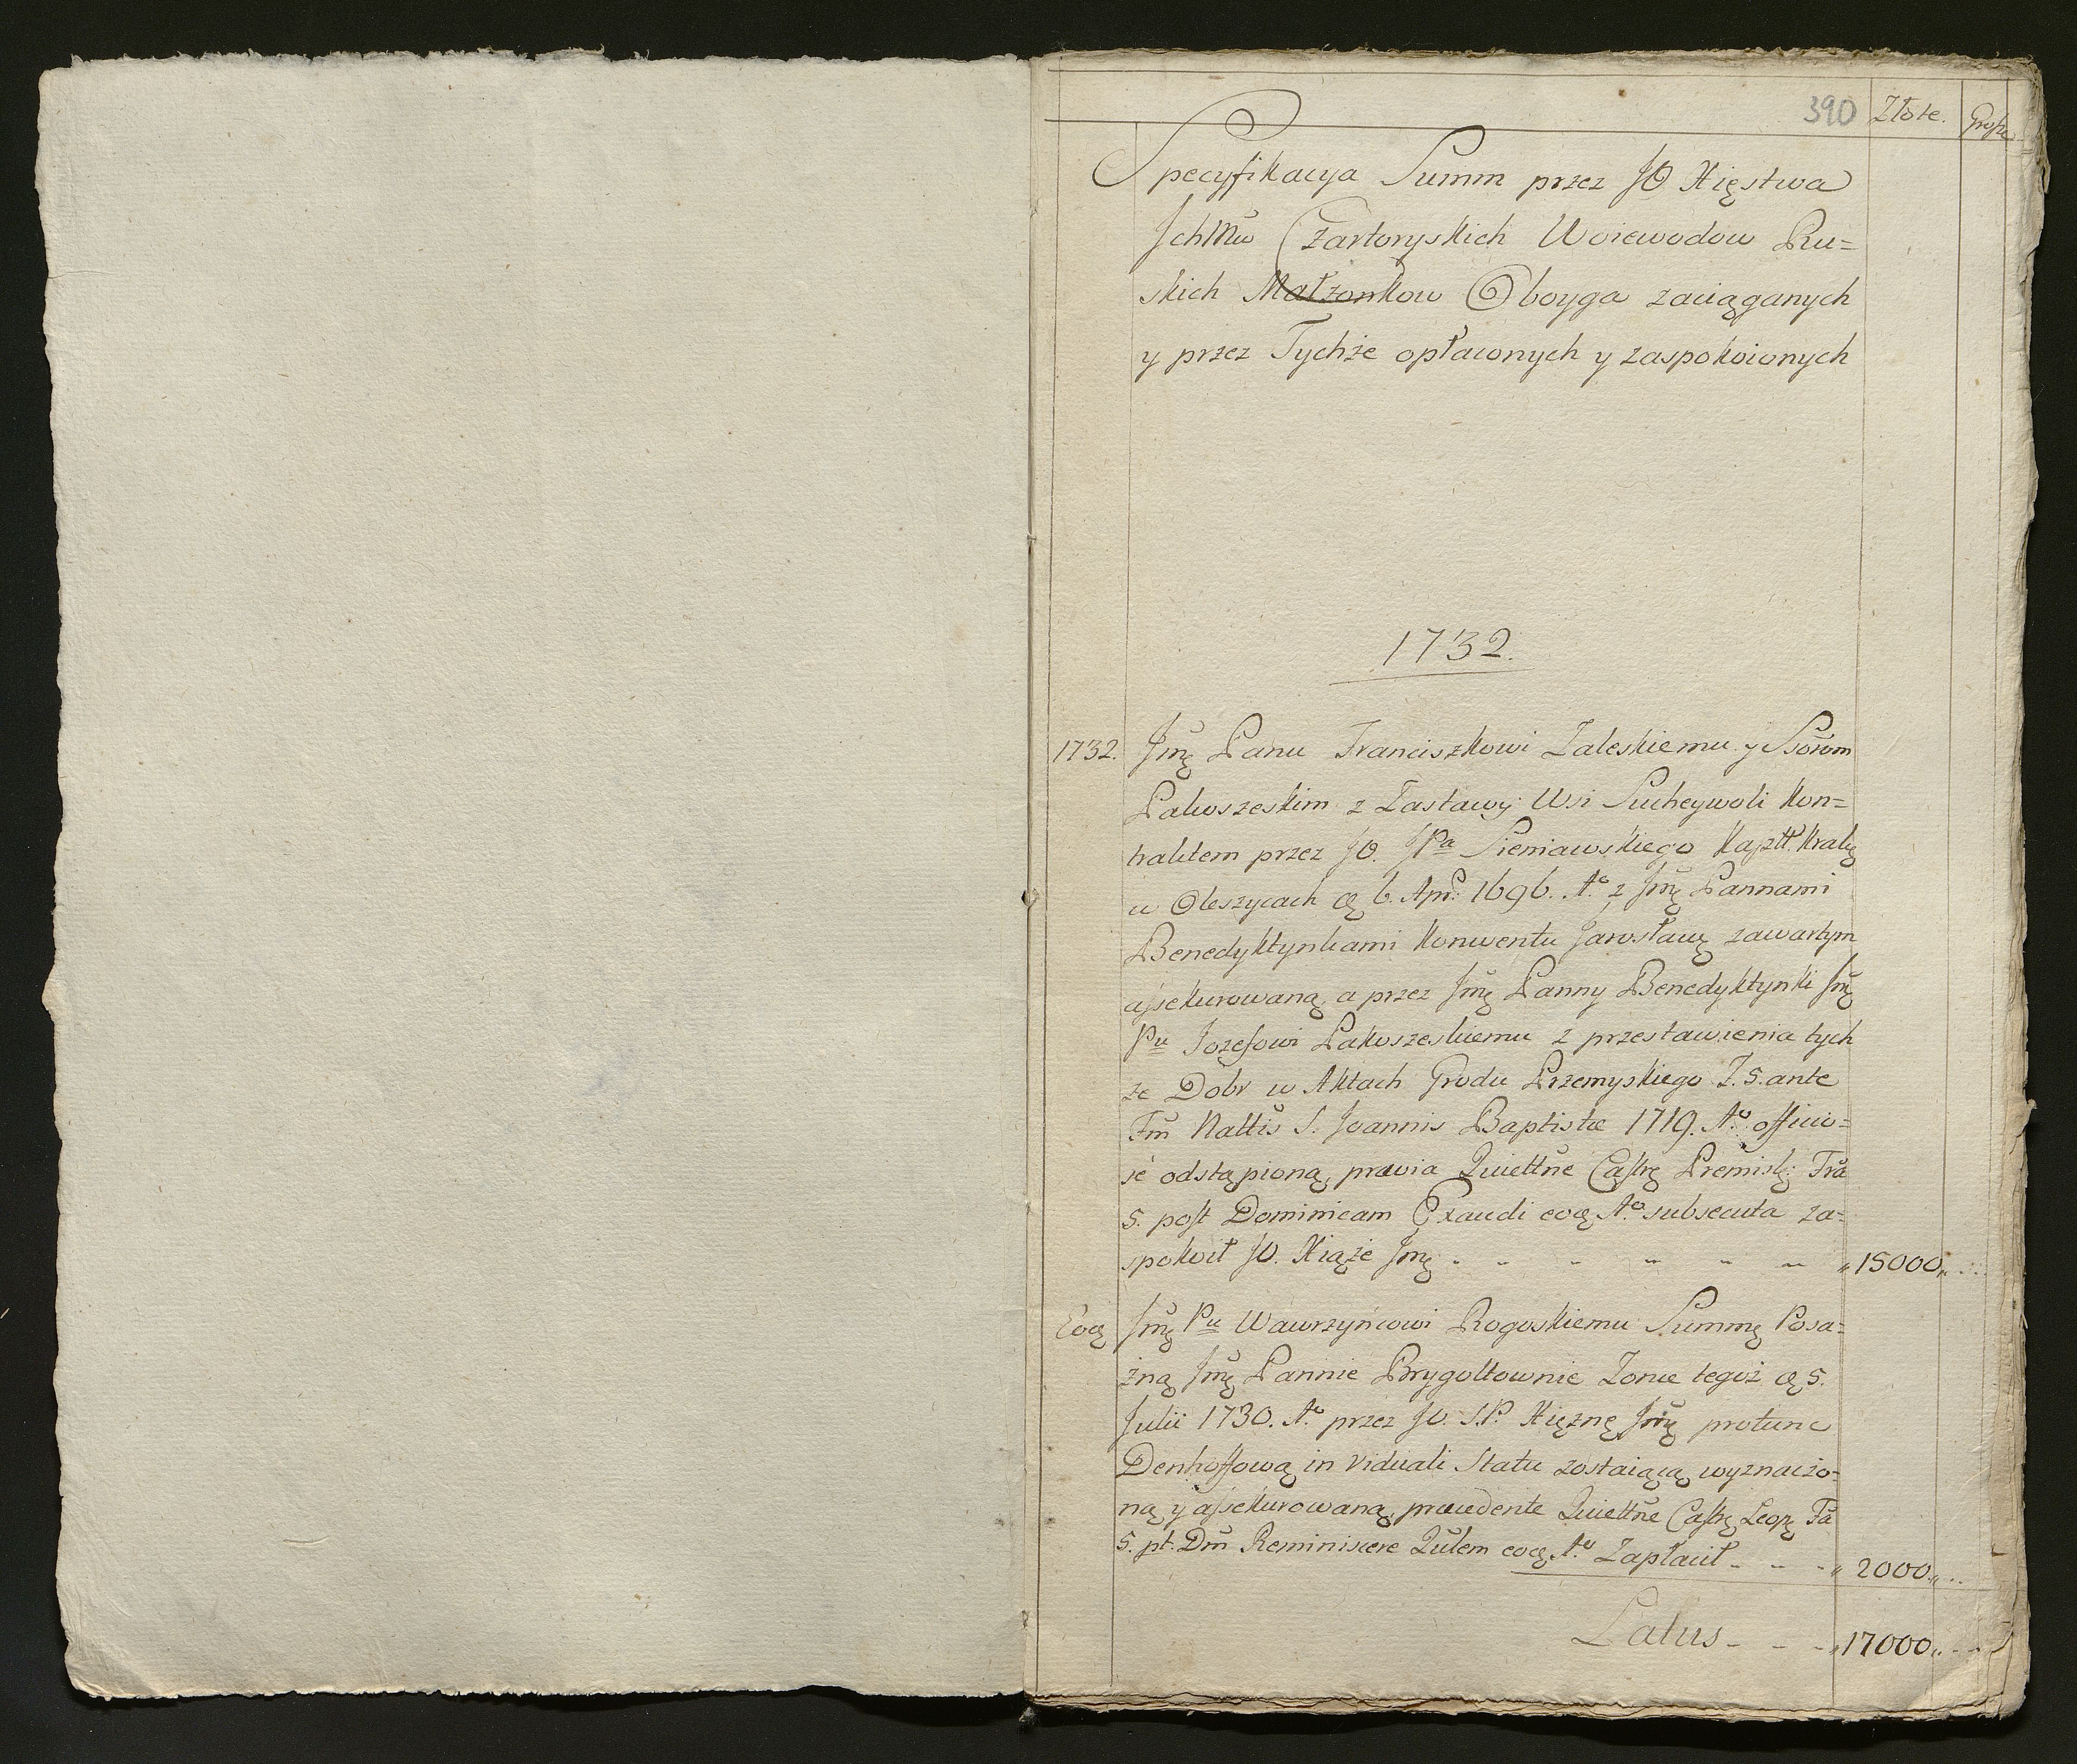 390 Złote. Grosze
Specyfikacya Summ przez JO Xięstwa
Jchmw Czartoryskich Woiewodow Ru=
skich Małzonkow Oboyga zaciąganych
y przez Tychże opłaconych y zaspokoionych
1732.
1732. Jmę Panu Franciszkowi Zaleskiemu y Ssorom
Pakoszeskim z Zastawy Wsi Sucheywoli Kon=
traktem przez JO. JPa Sieniawskiego Kasztt. Krakę
w Oleszycach dę 6. Apr: 1696. Ao z Jmę Pannami
Benedyktynkami Konwentu Jarosławę zawartym
assekurowaną, a przez Jmę Panny Benedyktynki Jmę
Pu Jozefowi Pakoszeskiemu z przestawienia tych
że Dobr w Aktach Grodu Przemyskiego F. 5. ante
Fm Nattis S. Joannis Baptistæ 1719. Ao officio=
sè odstąpioną, prævia Quiettne Castrę Premislę Fra
5. post Dominicam Exaudi eodę Ao subsecuta za=
spokoił JO. Xiąże Jmę - - - - - - „ 15000 „ ..
Eodę Jmę Pu Wawrzyńcowi Rogoskiemu Summę Posa=
żną Jmę Pannie Brygoltownie Zonie tegoż dę 5.
Julii 1730. Ao przez JO. S.P. Xiężnę Jmę protunc
Denhoffową in Viduali Statu zostaiącą wyznaczo=
ną y assekurowaną, præcedente Quiettne Castrę Leopę Fa
5. pt. Dm Reminiscere Qulem eodę Ao Zapłacił - - - „ 2000 „ ..
Latus - - - „ 17000 „ - -